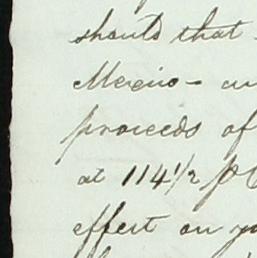 should that
Mexico - an
proceeds of
at 114 1/2 p
effect on yo